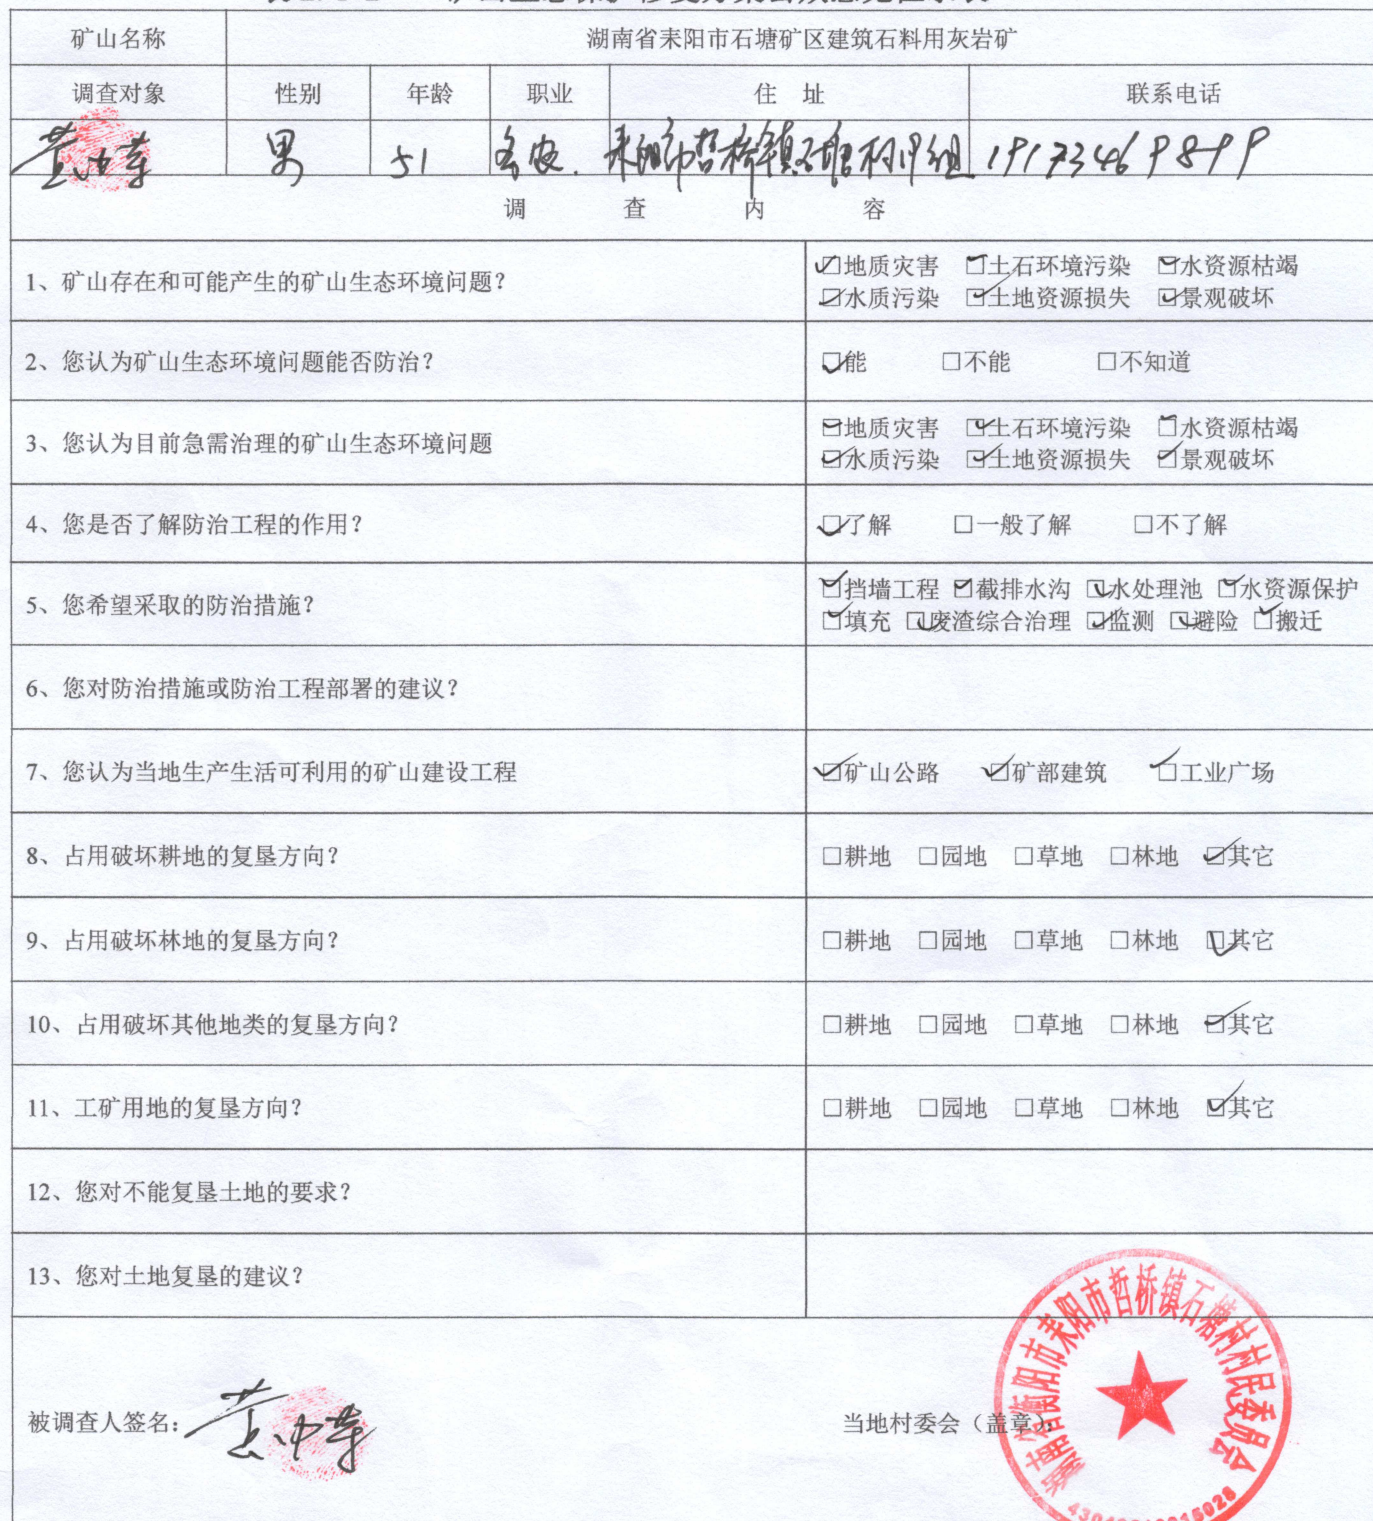 矿山名称 湖南省耒阳市石塘矿区建筑石料用灰岩矿
调查对象 性别 年龄 职业 住 址 联系电话
男 51 务农. 耒阳市哲桥镇石塘村 组
调 查 内 容
1、矿山存在和可能产生的矿山生态环境问题? ☑地质灾害 ☑土石环境污染 ☑水资源枯竭
☑水质污染 ☑土地资源损失 ☑景观破坏
2、您认为矿山生态环境问题能否防治? ☑能 □不能 □不知道
3、您认为目前急需治理的矿山生态环境问题 ☑地质灾害 ☑土石环境污染 ☑水资源枯竭
☑水质污染 ☑土地资源损失 ☑景观破坏
4、您是否了解防治工程的作用? ☑了解 □一般了解 □不了解
5、您希望采取的防治措施? ☑挡墙工程 ☑截排水沟 ☑水处理池 ☑水资源保护
☑填充 ☑废渣综合治理 ☑监测 ☑避险 ☑搬迁
6、您对防治措施或防治工程部署的建议?
7、您认为当地生产生活可利用的矿山建设工程 ☑矿山公路 ☑矿部建筑 ☑工业广场
8、占用破坏耕地的复垦方向? □耕地 □园地 □草地 □林地 ☑其它
9、占用破坏林地的复垦方向? □耕地 □园地 □草地 □林地 ☑其它
10、占用破坏其他地类的复垦方向? □耕地 □园地 □草地 □林地 ☑其它
11、工矿用地的复垦方向? □耕地 □园地 □草地 □林地 ☑其它
12、您对不能复垦土地的要求?
13、您对土地复垦的建议?
被调查人签名: 当地村委会（盖章）:
湖南省衡阳市耒阳市哲桥镇石塘村村民委员会